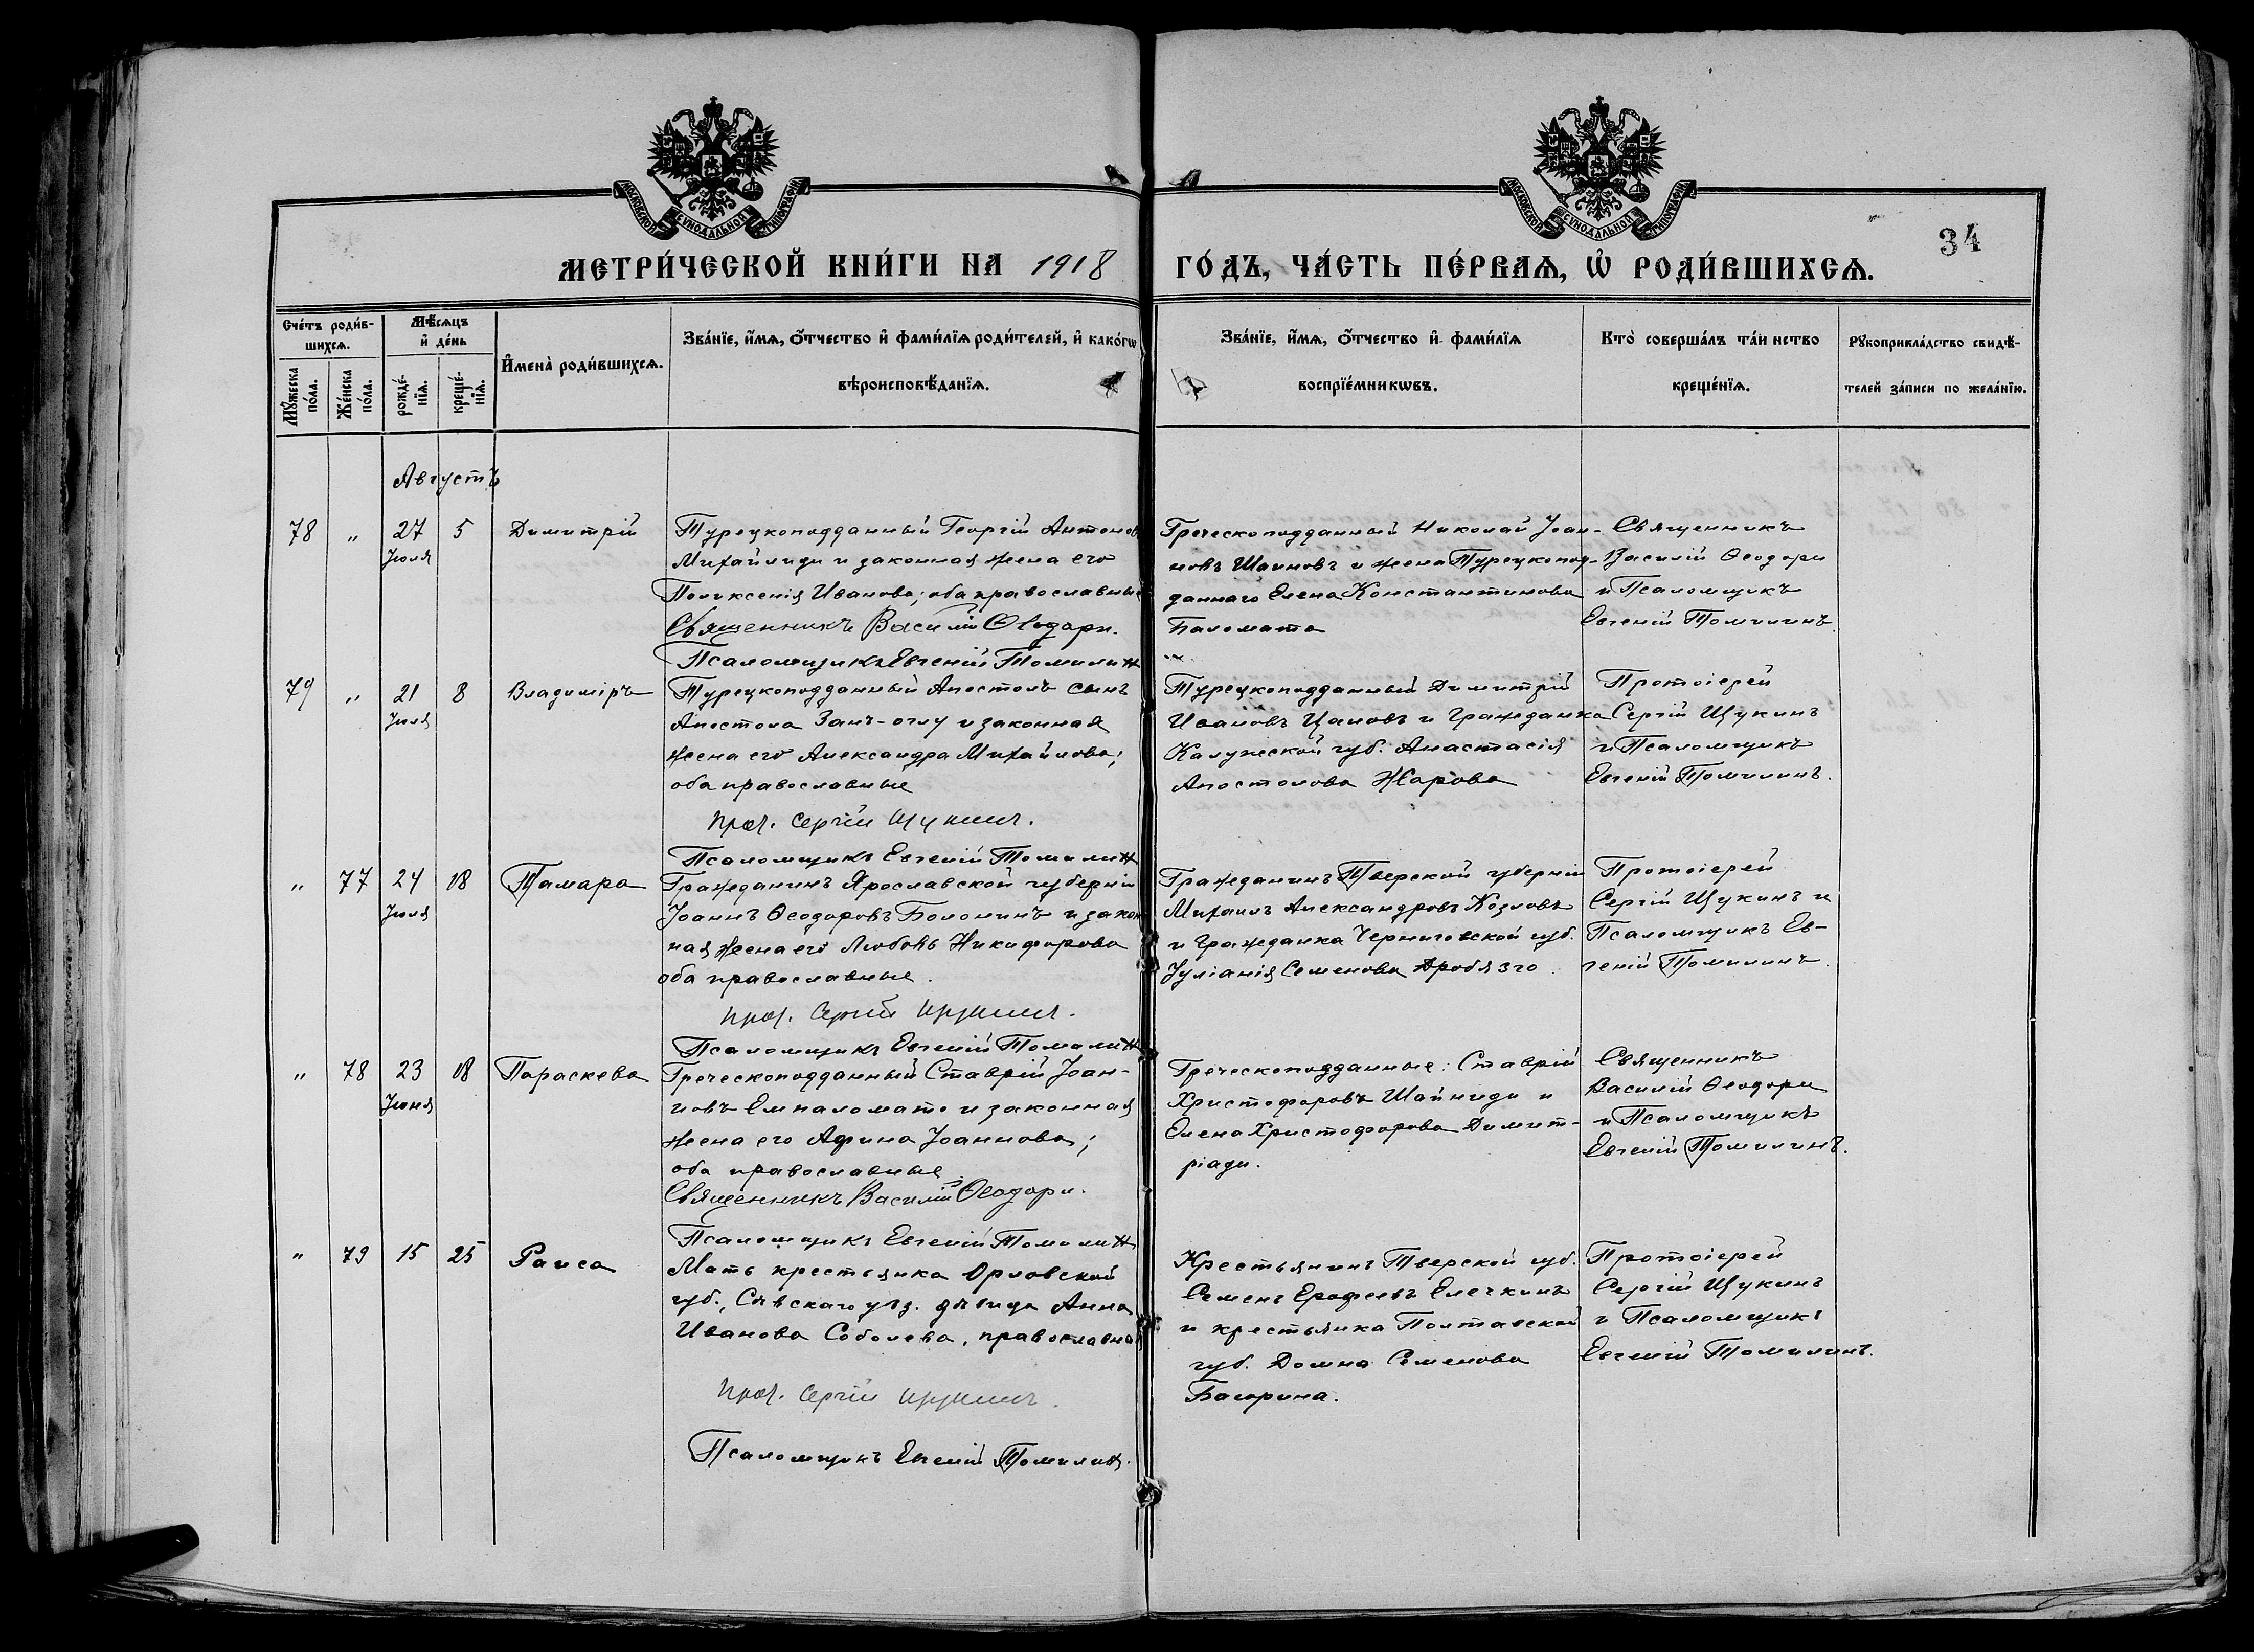 МОСКОВСКОЙ СѴНОДАЛЬНОЙ ТИПОГРАФІИ
МОСКОВСКОЙ СѴНОДАЛЬНОЙ ТИПОГРАФІИ
34
МЕТРИ́ЧЕСКОЙ КНИ́ГИ НА 1918 ГО́ДЪ, ЧА́СТЬ ПЕ́РВАѦ, Ѡ҆ РОДИ́ВШИХСѦ.
Сче́тъ роди́в-
шихсѧ.
Мꙋ́жеска по́ла.
Же́нска по́ла.
Мѣ́сѧцъ и҆ де́нь
рожде́-
нїѧ.
креще́-
нїѧ.
И҆мена̀ роди́вшихсѧ.
Зва́нїе, и҆́мѧ, ѻ҆́тчество и҆ фами́лїѧ роди́телей, и҆ како́гѡ
вѣроисповѣ́данїѧ.
Зва́нїе, и҆́мѧ, ѻ҆́тчество и҆ фами́лїѧ
воспрїе́мникѡвъ.
Кто̀ соверша́лъ та́инство
креще́нїѧ.
Рꙋкоприкла́дство свидѣ́-
телей за́писи по жела́нїю.
Августъ
78 " 27 5 Димитрій
Іюля
Турецкоподданный Георгій Антоновъ
Михайлиди и законная жена его
Поликсенія Иванова; оба православные
Священникъ Василій Ѳеодори.
Псаломщикъ Евгеній Томилин
Греческоподданный Николай Іоан-
новъ Шаиновъ и жена Турецкопод-
даннаго Елена Константинова
Паломата
Священникъ
Василій Ѳеодори
и Псаломщикъ
Евгеній Томилинъ.
79 " 21 8 Владиміръ
Іюля
Турецкоподданный Апостолъ сынъ
Апостола Занъ-оглу и законная
жена его Александра Михайлова;
оба православные
Прот. Сергій Щукинъ.
Псаломщикъ Евгеній Томилин
Турецкоподданный Димитрій
Ивановъ Цаповъ и Гражданка
Калужской губ. Анастасія
Апостолова Жарова
Протоіерей
Сергій Щукинъ
и Псаломщикъ
Евгеній Томилинъ.
" 77 24 18 Тамара
Іюля
Гражданинъ Ярославской губерніи
Іоаннъ Ѳеодоровъ Болонинъ и закон
ная жена его Любовь Никифорова
оба православные.
Прот. Сергій Щукинъ.
Псаломщикъ Евгеній Томилин
Гражданинъ Тверской губерніи
Михаилъ Александровъ Козловъ
и Гражданка Черниговской губ.
Іуліанія Семенова
Протоіерей
Сергій Щукинъ и
Псаломщикъ Ев-
геній Томилинъ.
" 78 23 18 Параскева
Іюня
Греческоподданный Ставрій Іоан-
новъ Емпаломато и законная
жена его Афина Іоаннова;
оба православные
Священникъ Василій Ѳеодори.
Псаломщикъ Евгеній Томилин
Греческоподданные: Ставрій
Христофоровъ Шаиниди и
Елена Христофорова Димит-
ріади.
Священникъ
Василій Ѳеодори
и Псаломщикъ
Евгеній Томилинъ.
" 79 15 25 Раиса
Мать крестьянка Орловской
губ., Сѣвскаго уѣз. дѣвица Анна
Иванова Соболева, православная
Прот. Сергій Щукинъ.
Псаломщикъ Евгеній Томилин.
Крестьянинъ Тверской губ.
Семенъ Ерофеевъ Елечкинъ
и крестьянка Полтавской
губ. Домна Семенова
Багрина.
Протоіерей
Сергій Щукинъ
и Псаломщикъ
Евгеній Томилинъ.